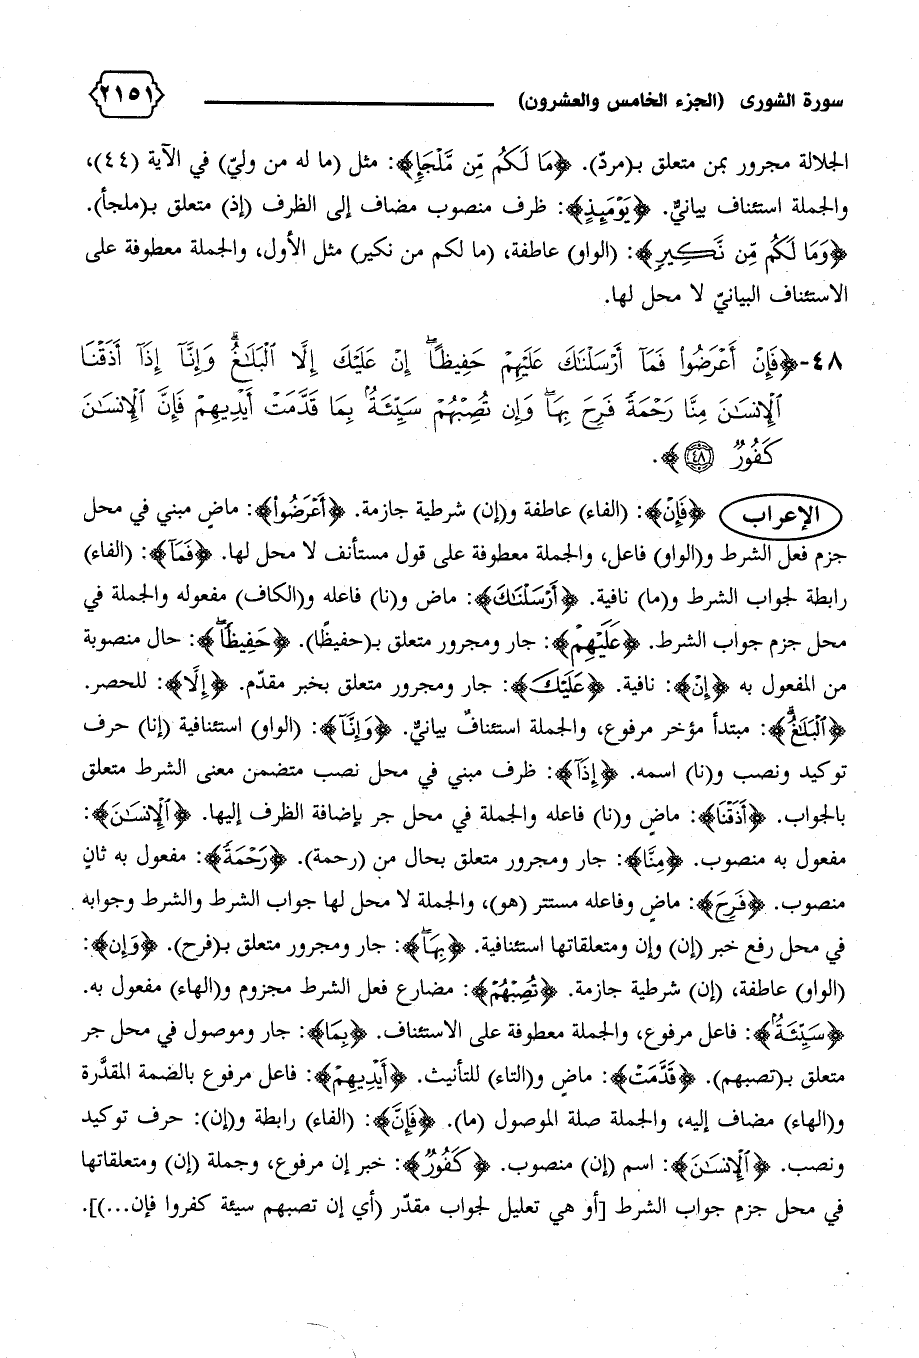 سورة الشورى (الجزء الخامس والعشرون) ٢١٥١
الجلالة مجرور بمن متعلق بـ(مردّ). ﴿مَا لَكُم مِّن مَّلْجَإٍ﴾: مثل (ما له من وليّ) في الآية (٤٤)،
والجملة استئناف بيانيٌّ. ﴿يَوْمَئِذٍ﴾: ظرف منصوب مضاف إلى الظرف (إذ) متعلق بـ(ملجأ).
﴿وَمَا لَكُم مِّن نَّكِيرٍ﴾: (الواو) عاطفة، (ما لكم من نكير) مثل الأول، والجملة معطوفة على
الاستئناف البيانيّ لا محل لها.
٤٨-﴿فَإِنْ أَعْرَضُوا۟ فَمَآ أَرْسَلْنَٰكَ عَلَيْهِمْ حَفِيظًا ۖ إِنْ عَلَيْكَ إِلَّا ٱلْبَلَٰغُ ۗ وَإِنَّآ إِذَآ أَذَقْنَا
ٱلْإِنسَٰنَ مِنَّا رَحْمَةً فَرِحَ بِهَا ۖ وَإِن تُصِبْهُمْ سَيِّئَةٌۢ بِمَا قَدَّمَتْ أَيْدِيهِمْ فَإِنَّ ٱلْإِنسَٰنَ
كَفُورٌ ٤٨﴾.
الإعراب ﴿فَإِنْ﴾: (الفاء) عاطفة و(إن) شرطية جازمة. ﴿أَعْرَضُوا۟﴾: ماضٍ مبني في محل
جزم فعل الشرط و(الواو) فاعل، والجملة معطوفة على قول مستأنف لا محل لها. ﴿فَمَآ﴾: (الفاء)
رابطة لجواب الشرط و(ما) نافية. ﴿أَرْسَلْنَٰكَ﴾: ماض و(نا) فاعله و(الكاف) مفعوله والجملة في
محل جزم جواب الشرط. ﴿عَلَيْهِمْ﴾: جار ومجرور متعلق بـ(حفيظًا). ﴿حَفِيظًا ۖ﴾: حال منصوبة
من المفعول به ﴿إِنْ﴾: نافية. ﴿عَلَيْكَ﴾: جار ومجرور متعلق بخبر مقدّم. ﴿إِلَّا﴾: للحصر.
﴿ٱلْبَلَٰغُ ۗ﴾: مبتدأ مؤخر مرفوع، والجملة استئنافٌ بيانيٌّ. ﴿وَإِنَّآ﴾: (الواو) استئنافية (إنا) حرف
توكيد ونصب و(نا) اسمه. ﴿إِذَآ﴾: ظرف مبني في محل نصب متضمن معنى الشرط متعلق
بالجواب. ﴿أَذَقْنَا﴾: ماضٍ و(نا) فاعله والجملة في محل جر بإضافة الظرف إليها. ﴿ٱلْإِنسَٰنَ﴾:
مفعول به منصوب. ﴿مِنَّا﴾: جار ومجرور متعلق بحال من (رحمة). ﴿رَحْمَةً﴾: مفعول به ثانٍ
منصوب. ﴿فَرِحَ﴾: ماضٍ وفاعله مستتر (هو)، والجملة لا محل لها جواب الشرط والشرط وجوابه
في محل رفع خبر (إن) وإن ومتعلقاتها استئنافية. ﴿بِهَا ۖ﴾: جار ومجرور متعلق بـ(فرح). ﴿وَإِن﴾:
(الواو) عاطفة، (إن) شرطية جازمة. ﴿تُصِبْهُمْ﴾: مضارع فعل الشرط مجزوم و(الهاء) مفعول به.
﴿سَيِّئَةٌۢ﴾: فاعل مرفوع، والجملة معطوفة على الاستئناف. ﴿بِمَا﴾: جار وموصول في محل جر
متعلق بـ(تصبهم). ﴿قَدَّمَتْ﴾: ماضٍ و(التاء) للتأنيث. ﴿أَيْدِيهِمْ﴾: فاعل مرفوع بالضمة المقدَّرة
و(الهاء) مضاف إليه، والجملة صلة الموصول (ما). ﴿فَإِنَّ﴾: (الفاء) رابطة و(إن): حرف توكيد
ونصب. ﴿ٱلْإِنسَٰنَ﴾: اسم (إن) منصوب. ﴿كَفُورٌ﴾: خبر إن مرفوع، وجملة (إن) ومتعلقاتها
في محل جزم جواب الشرط [أو هي تعليل لجواب مقدّر (أي إن تصبهم سيئة كفروا فإن...)].